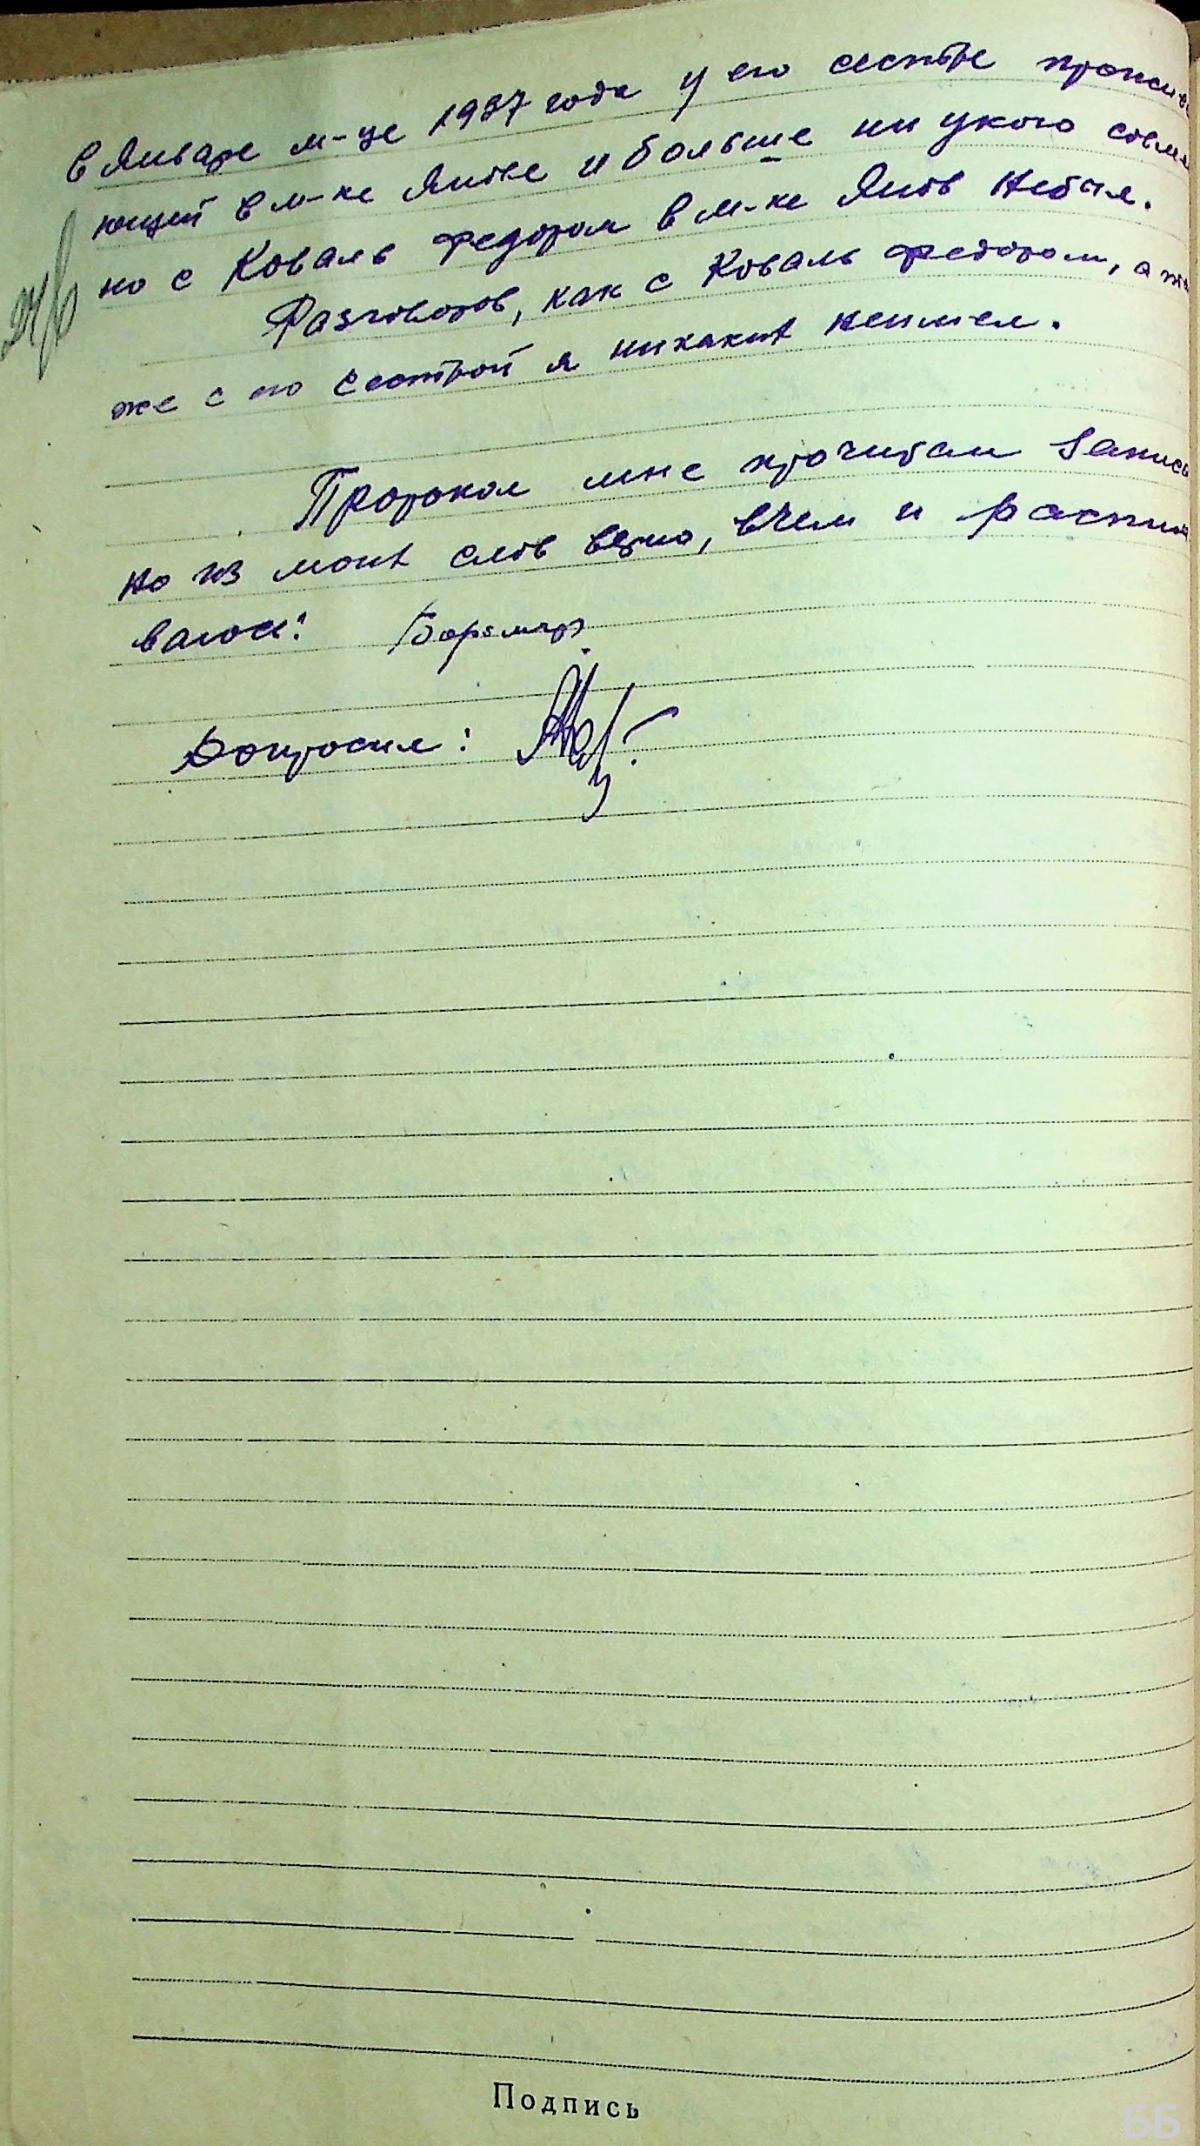 в Январе м-це 1937 года у его сестре прожив
ющей в м-ке Янове и больше ни укого совме
но с Коваль Федором в м-ке Янов небыл.
Разговоров, как с Коваль Федором, а та
же с его сестрой я никаких неимел.
Протокол мне прочитан записа
но из моих слов верно, вчем и расписы
ваюсь:
Допросил:
Подпись
ББ